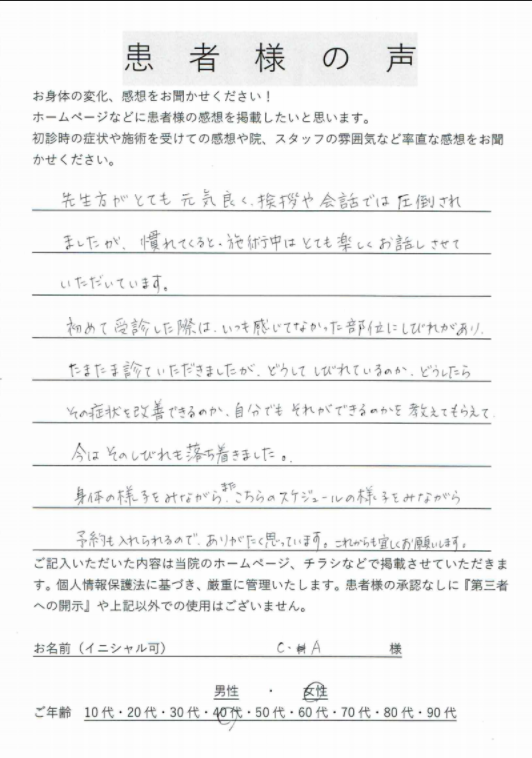 患者様の声
お身体の変化、感想をお聞かせください！
ホームページなどに患者様の感想を掲載したいと思います。
初診時の症状や施術を受けての感想や院、スタッフの雰囲気など率直な感想をお聞
かせください。
先生方がとても元気良く、挨拶や会話では圧倒され
ましたが、慣れてくると、施術中はとても楽しくお話しさせて
いただいています。
初めて受診した際は、いつも感じてなかった部位にしびれがあり、
たまたま診ていただきましたが、どうしてしびれているのか、どうしたら
その症状を改善できるのか、自分でもそれができるのかを教えてもらえて、
今はそのしびれも落ち着きました。
身体の様子をみながら、またこちらのスケジュールの様子をみながら
予約も入れられるので、ありがたく思っています。これからも宜しくお願いします。
ご記入いただいた内容は当院のホームページ、チラシなどで掲載させていただきま
す。個人情報保護法に基づき、厳重に管理いたします。患者様の承認なしに『第三者
への開示』や上記以外での使用はございません。
お名前（イニシャル可） C・A 様
男性 ・ 女性
ご年齢 10代・20代・30代・40代・50代・60代・70代・80代・90代